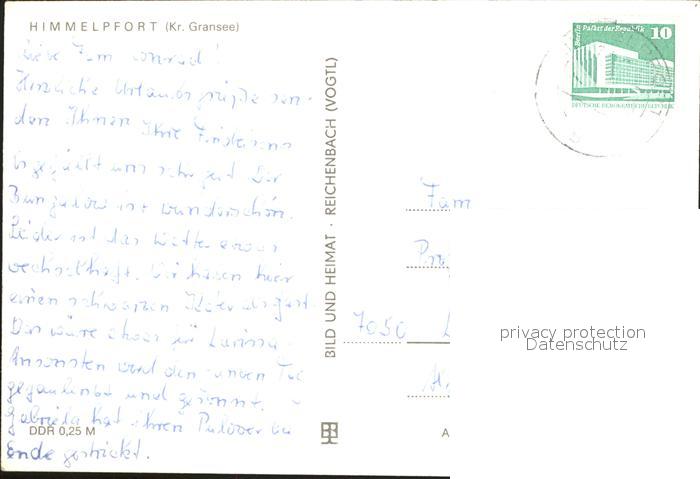 HIMMELPFORT (Kr. Gransee)
Liebe Fam Conrad!
Herzliche Urlaubsgrüße sen-
den Ihnen Ihre
gefällt uns sehr gut Der
Bungalow ist wunderschön.
Leider ist das Wetter etwas
wechselhaft. Wir haben hier
einen schwarzen Kater als Gast.
Das wäre etwas für Larissa.
Ansonsten wird den ganzen Tag
gegammelt und gesonnt.
Gabriela hat ihren Pullover zu
Ende gestrickt.
DDR 0,25 M
BILD UND HEIMAT · REICHENBACH (VOGTL)
Berlin Palast der Republik 10
DEUTSCHE DEMOKRATISCHE REPUBLIK
Fam
7050 L
A
privacy protection
Datenschutz